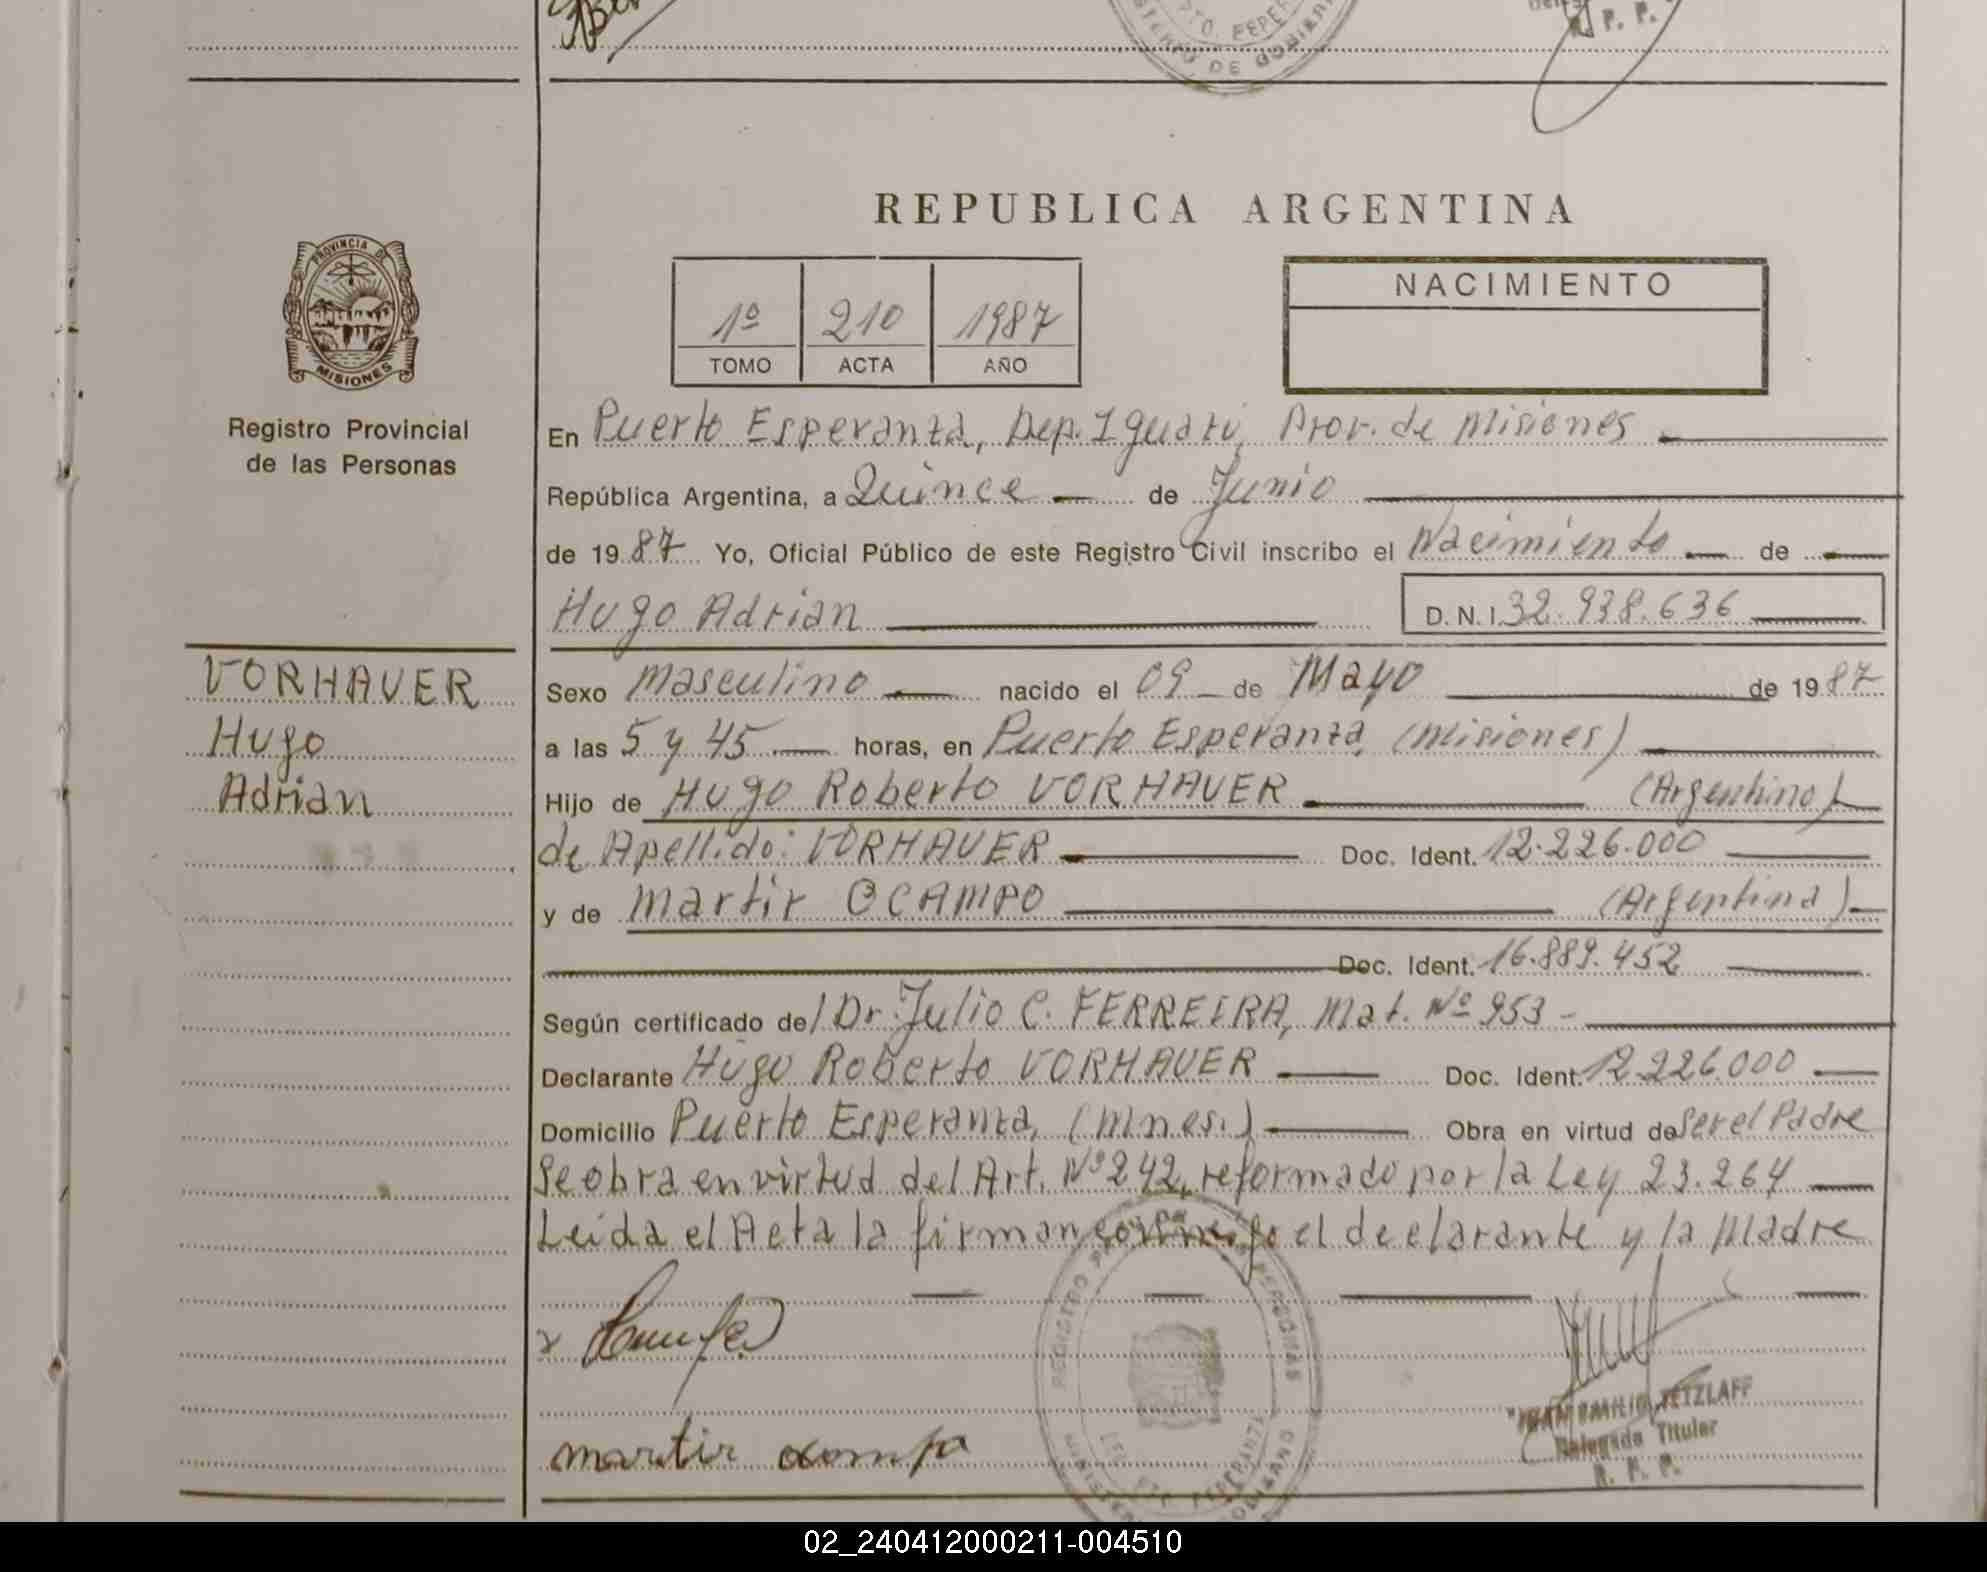 DE GOBIERN
P. P.
REPUBLICA ARGENTINA
PROVINCIA DE
MISIONES
Registro Provincial
de las Personas
1º 210 1987
TOMO ACTA AÑO
NACIMIENTO
En Puerto Esperanza, Dep. Iguazú, Prov. de Misiones
República Argentina, a Quince de Junio
de 1987 Yo, Oficial Público de este Registro Civil inscribo el Nacimiento de
Hugo Adrian D. N. I. 32.938.636
VORHAUER
Hugo
Adrian
Sexo Masculino nacido el 09 de Mayo de 1987
a las 5 y 45 horas, en Puerto Esperanza, (Misiones)
Hijo de Hugo Roberto VORHAUER (Argentino)
de Apellido: VORHAUER Doc. Ident. 12.226.000
y de Martir OCAMPO (Argentina)
Doc. Ident. 16.889.452
Según certificado de/ Dr. Julio C. FERREIRA, Mat. Nº 953 -
Declarante Hugo Roberto VORHAUER Doc. Ident. 12.226.000
Domicilio Puerto Esperanza, (Mnes.) Obra en virtud de Ser el Padre
Se obra en virtud del Art. Nº 242, reformado por la Ley 23.264
Leida el Acta la firman conmigo el declarante y la Madre
martir ocampo
EMILIO TETZLAFF
Delegado Titular
R. P. P.
02_240412000211-004510